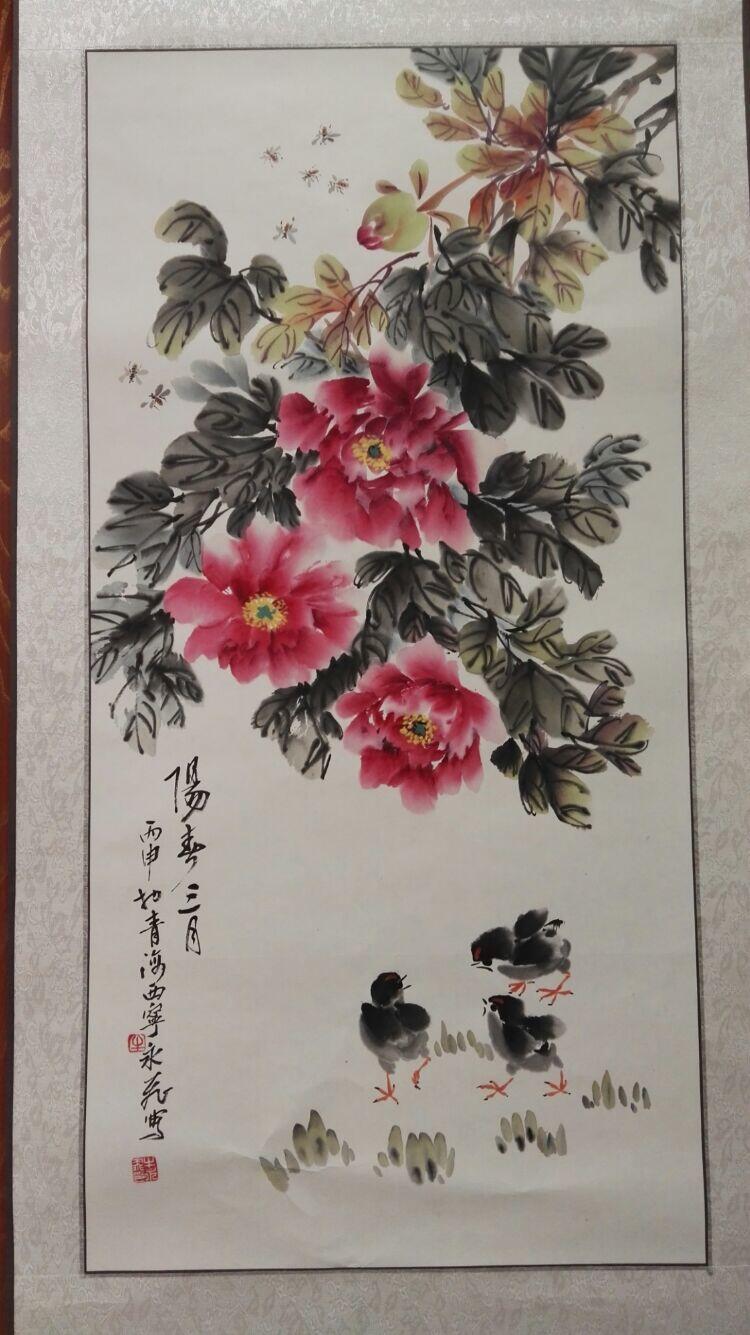 陽春三月
丙申於青海西寧永花寫